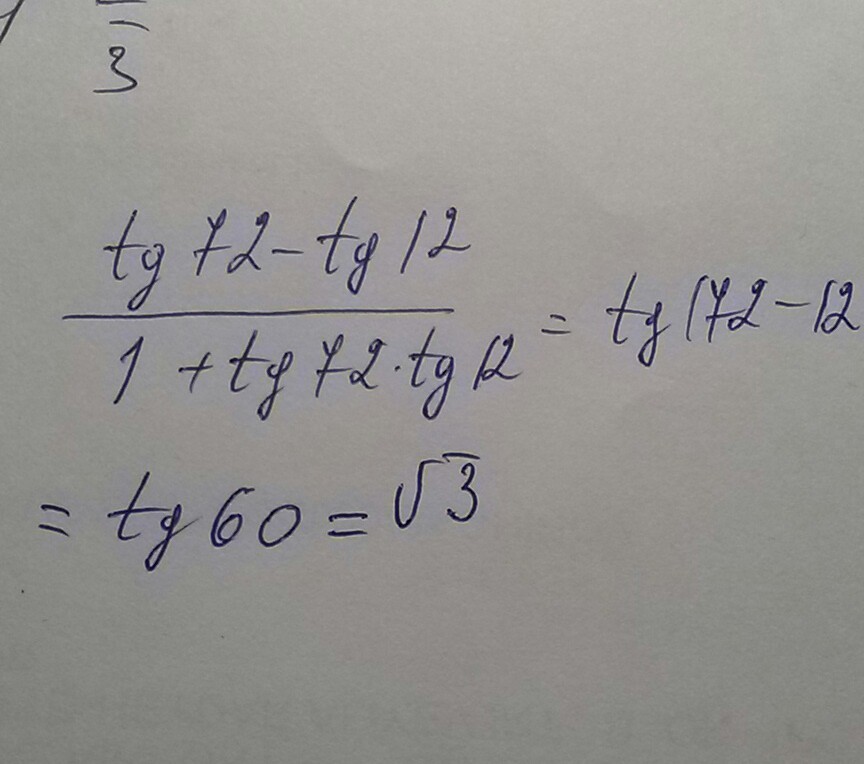 3
tg 72 - tg 12
1 + tg 72 · tg 12 = tg (72 - 12
= tg 60 = √3